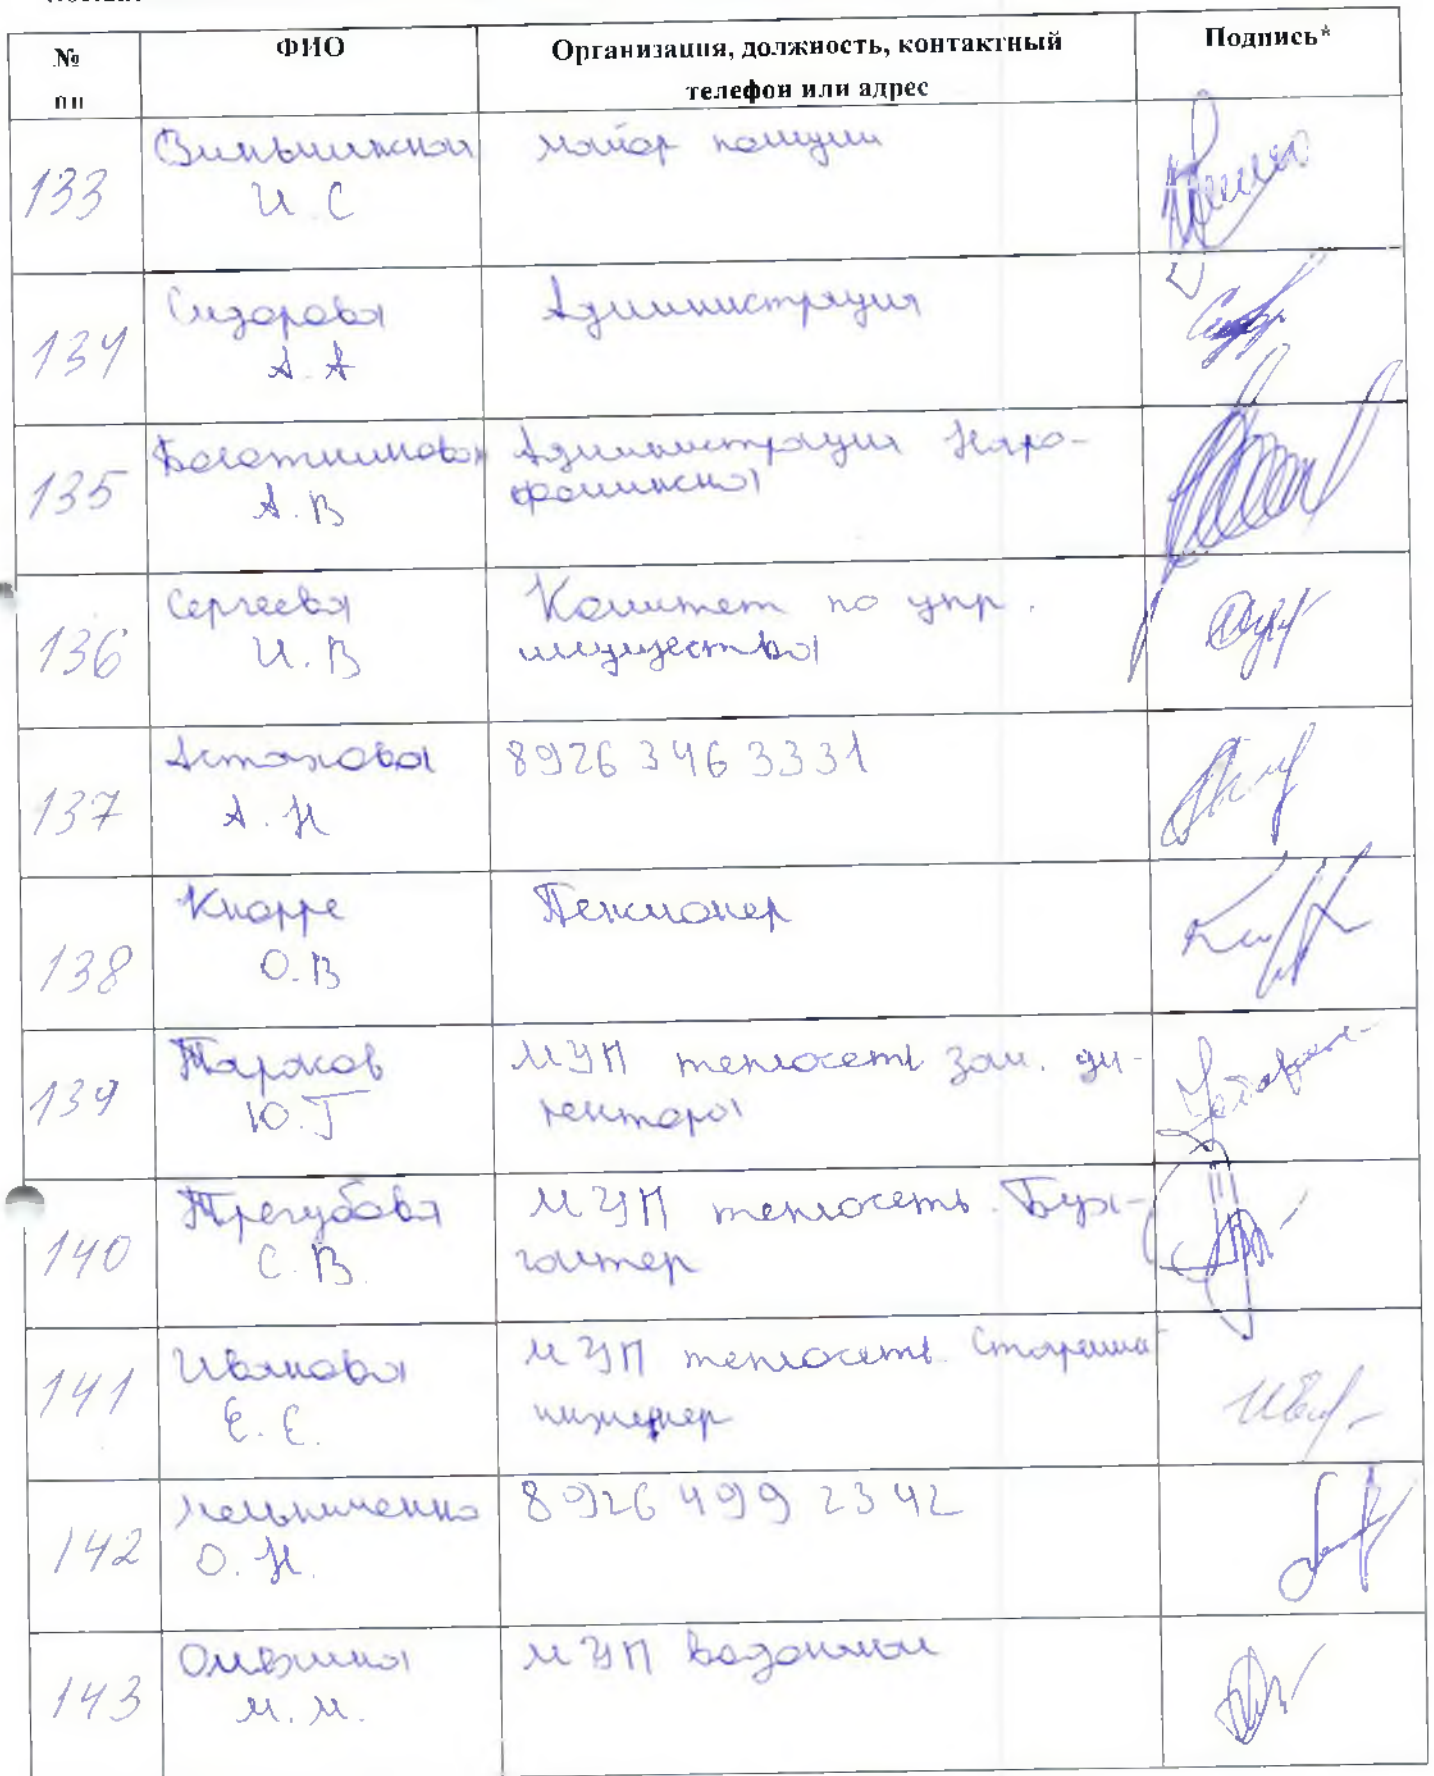 № пп
ФИО
Организация, должность, контактный телефон или адрес
Подпись*
133
И. С
майор полиции
134
Сидорова
А. А
Администрация
135
А. В
Администрация Наро-
фоминска
136
Сергеева
И. В
Комитет по упр.
имущества
137
Астахова
А. Н
8926 346 3331
138
Кнорре
О. В
Пенсионер
139
Тарасов
Ю. Г
МУП теплосеть зам. ди-
ректора
140
Трегубова
С. В.
МУП теплосеть. Бух-
галтер
141
Иванова
Е. Е.
МУП теплосеть
инженер
142
Мельниченко
О. Н.
8926 499 2342
143
М. М.
МУП водоканал